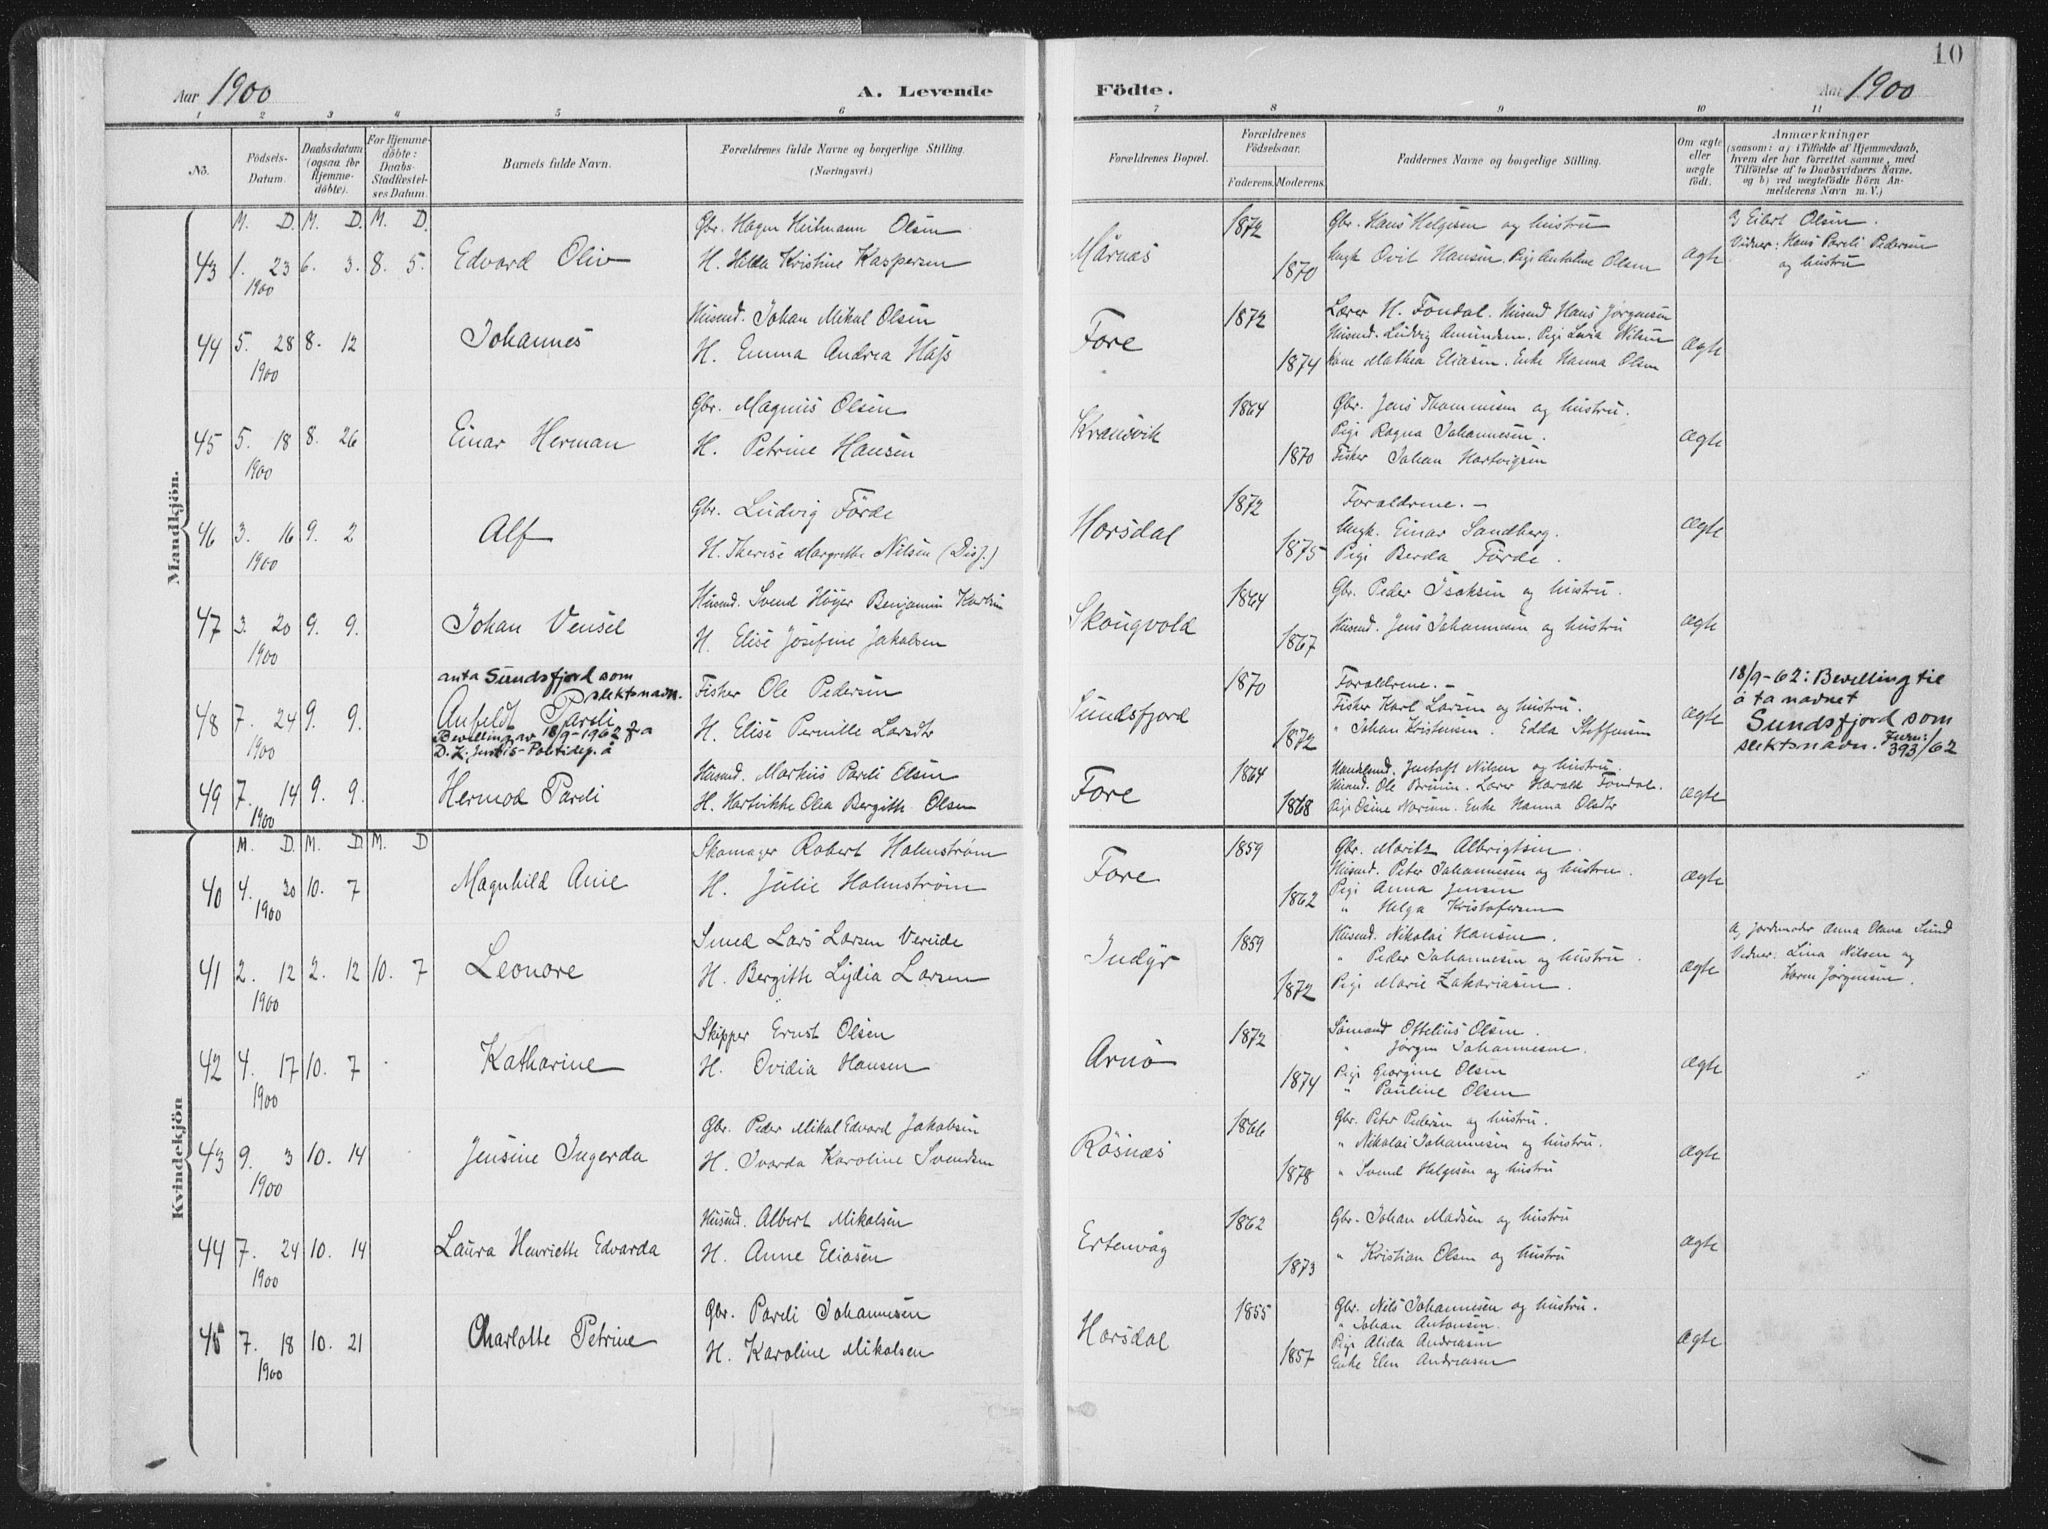 10
Aar 1900
A. Levende
Födte.
Aar 1900
1 2 3 4 5 6 7 8 9 10 11
No.
Födsels-Datum.
Daabsdatum (ogsaa for Hjemme-döbte).
For Hjemme-döbte: Daabs-Stadfæstel-ses Datum.
Barnets fulde Navn.
Forældrenes fulde Navne og borgerlige Stilling. (Næringsvei.)
Forældrenes Bopæl.
Forældrenes Födselsaar.
Faderens. Moderens.
Faddernes Navne og borgerlige Stilling.
Om ægte eller uægte födt.
Anmærkninger
(saasom: a) i Tilfælde af Hjemmedaab, hvem der har forrettet samme, med Tilföielse af to Daabsvidners Navne. og b) ved uægtefödte Börn An-melderens Navn m. V.)
Mandkjön.
M. D. M. D. M. D.
43 1. 23 1900 6. 3. 8. 5. Edvard Oliv
Gbr. Hagen Heitmann Olsen
H. Hilda Kristine Kaspersen
Mårnæs 1872 1870
Gbr. Hans Helgesen og hustru
Ungk Ovit Hansen. Pige Antoline Olsen
ægte
a) Eilert Olsen.
Vidner: Hans Pareli Pedersen
og hustru
44 5. 28 1900 8. 12 Johannes
Husmd. Johan Mikal Olsen
H. Emma Andrea Hass
Fore 1872 1874
Lærer H. Fondal. Husmd Hans Jørgensen
Husmd. Ludvig Amundsen. Pige Lovia Nilsen
Kone Mathea Eliasen. Enke Hanna Olsen
ægte
45 5. 18 1900 8. 26 Einar Herman
Gbr. Magnus Olsen
H. Petrine Hansen
Kransvik 1864 1870
Gbr. Jens Thommesen og hustru.
Pige Ragna Johannesen.
Fisker Johan Hartvigsen
ægte
46 3. 16 1900 9. 2 Alf
Gbr. Ludvig Förde
H. Therese Margrethe Nilsen (Diss.)
Horsdal 1872 1875
Forældrene. -
Ungk. Einar Sandberg.
Pige Berda Förde.
ægte
47 3. 20 1900 9. 9. Johan Vensel
Husmd. Svend Höyer Benjamin Karlsen
H. Elise Josefine Jakobsen
Skougvold 1864 1867
Gbr. Peder Isaksen og hustru.
Husmd. Jens Johannesen og hustru
ægte
anta Sundsfjord som
slektsnavn.
48 7. 24 1900 9. 9. Anfeldt Pareli
Bevilling av 18/9-1962 fra
D.K. Justis-Politidep. å
Fisker Ole Pedersen
H. Elise Pernille Larsdtr
Sundsfjord 1870 1872
Forældrene. -
Fisker Karl Larsen og hustru.
" Johan Kristensen. Edda Steffensen
ægte
18/9-62: Bevilling til
å ta navnet
Sundsfjord som
slektsnavn. Jurn: 393/62
49 7. 14 1900 9. 9. Hermod Pareli
Husmd. Markus Pareli Olsen
H. Hartvikke Olea Bergitte Olsen
Fore 1864 1868
Handelsmd. Gustaft Nilsen og hustru.
Husmd. Ole Bruun. Lærer Harald Fondal.
Pige Osine Norum. Enke Hanna Olsdtr
ægte
Kvindekjön
M. D. M. D M. D
40 4. 30 1900 10. 7 Magnhild Anie
Skomager Robert Holmstrøm
H. Julie Holmstrøm
Fore 1859 1862
Gbr. Moritz Albrigtsen.
Husmd. Peter Johannesen og hustru.
Pige Anna Jensen
" Helga Kristofersen
ægte
41 2. 12 1900 2. 12 10. 7 Leonore
Smed Lars Larsen Verude
H. Bergitte Lydia Larsen
Indyr 1859 1872
Husmd. Nikolai Hansen.
" Peder Johannesen og hustru.
Pige Marie Zakariasen.
ægte
a) Jordmoder Anna Olava Sund
Vidner: Lina Nilsen og
Karen Jørgensen.
42 4. 17 1900 10. 7 Katharine
Skipper Ernst Olsen
H. Ovidia Hansen
Arnö 1872 1874
Sömand Ottelius Olsen.
" Jörgen Johannesen.
Pige Georgine Olsen
" Pauline Olsen
ægte
43 9. 3 1900 10. 14 Jensine Ingerda
Gbr. Peder Mikal Edvard Jakobsen
H. Ivarda Karoline Svendsen
Rösnæs 1866 1878
Gbr. Peter Pedersen og hustru.
" Nikolai Johannesen og hustru.
" Svend Helgesen og hustru
ægte
44 7. 24 1900 10. 14 Laura Henriette Edvarda
Husmd. Albert Mikalsen
H. Anne Eliasen
Ertenvåg 1862 1873
Gbr. Johan Madsen og hustru
" Kristian Olsen og hustru
ægte
45 7. 18 1900 10. 21 Charlotte Petrine
Gbr. Pareli Johannesen
H. Karoline Mikalsen
Horsdal 1855 1857
Gbr. Nils Johannesen og hustru.
" Johan Antonsen.
Pige Alida Andreasen
Enke Elen Andreasen
ægte